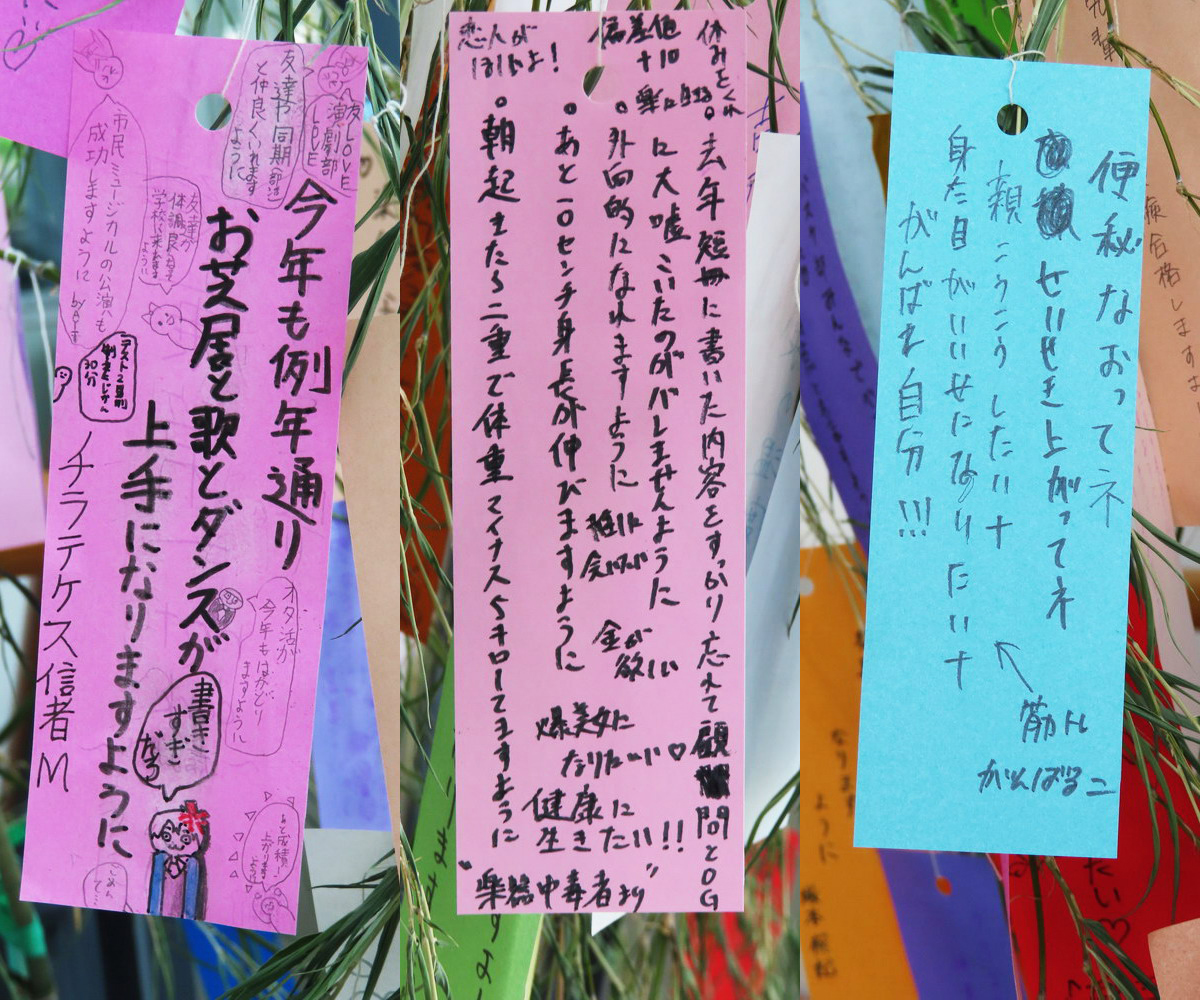 今年も例年通り
お芝居と歌とダンスが
上手になりますように
チラテケス信者M
友LOVE
演劇部
LOVE
友達や同期部活
と仲良くいれます
ように
市民ミュージカルの公演も
成功しますように
友達が
体調良くなって
学校に来れます
ように
テスト2日前
30分
オタ活が
今年もはかどり
ますように
書き
すぎ
だろ
あと成績!
上がります
ように
休みをくれ
偏差値
+10
楽になる
恋人が
ほしいよ!
。去年短冊に書いた内容をすっかり忘れて顧問とOG
に大嘘こいたのがバレませんように
。外向的になれますように
推しに
会いたい
金が
欲しい
。あと一〇センチ身長が伸びますように
爆美女に
なりたーい♡
健康に
生きたい!!
。朝起きたら二重で体重マイナス5キロしてますように
"楽器中毒者より"
便秘なおってネ
せいせき上がってネ
親こうこうしたいナ
身た目がいいせになりたいナ
がんばれ自分!!!
筋トレ
がんばるこ